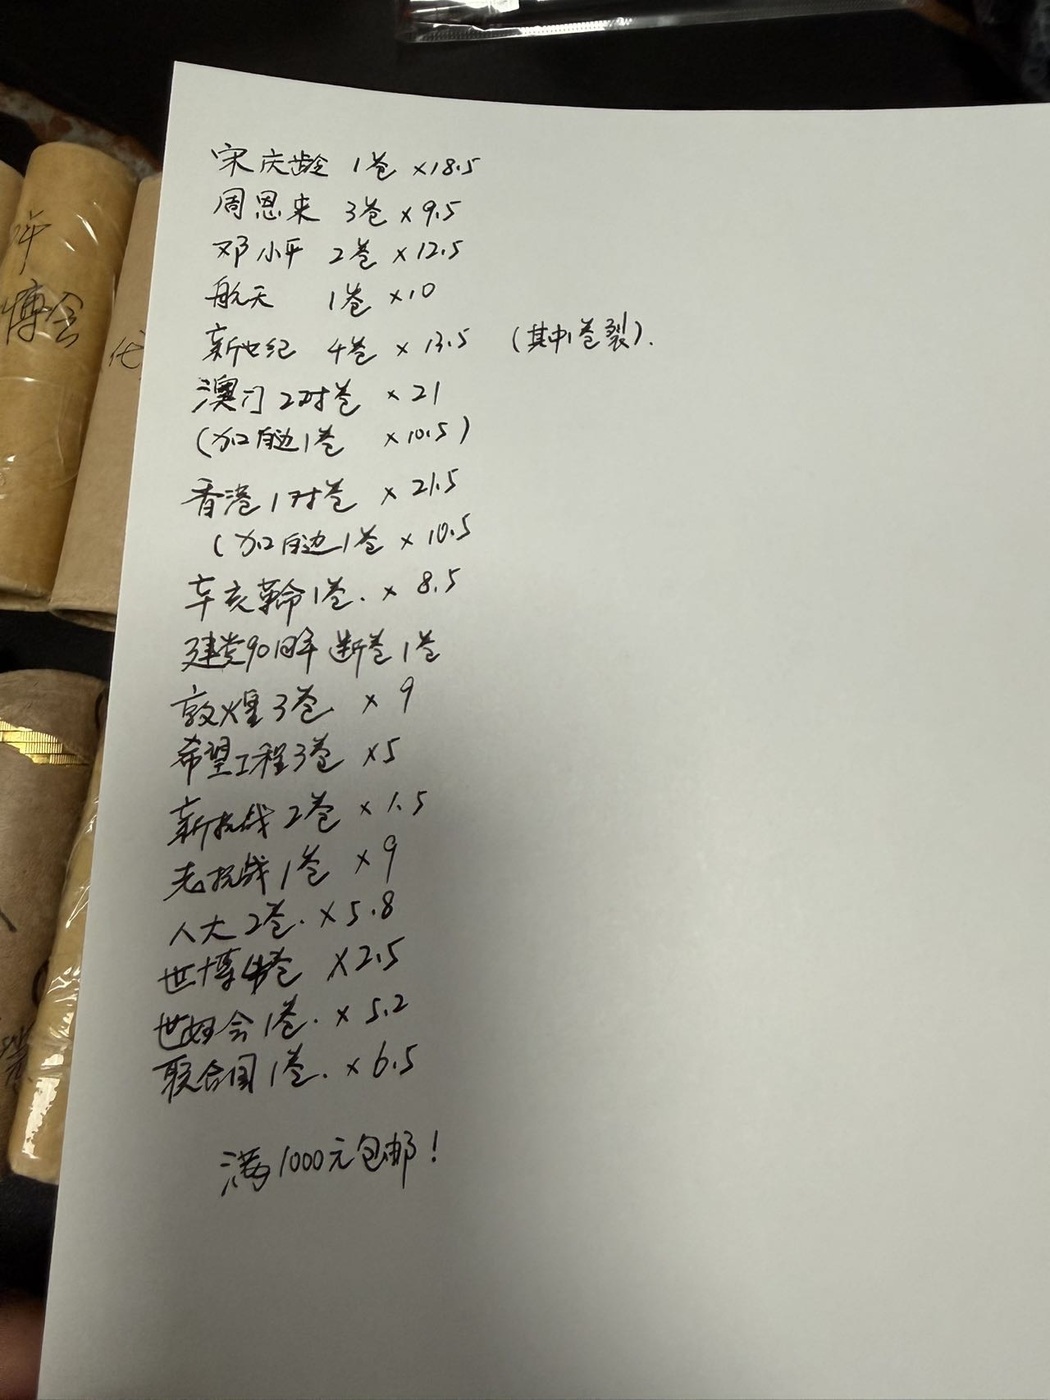 宋庆龄 1卷 ×18.5
周恩来 3卷 ×9.5
邓小平 2卷 ×12.5
航天 1卷 ×10
新世纪 4卷 ×13.5 (其中1卷裂).
澳门2对卷 ×21
(加白边1卷 ×10.5)
香港1对卷 ×21.5
(加白边1卷 ×10.5
辛亥革命1卷. ×8.5
建党90周年 断卷1卷
敦煌3卷 ×9
希望工程3卷 ×5
新抗战2卷 ×1.5
老抗战1卷 ×9
人大2卷. ×5.8
世博4卷 ×2.5
世妇会1卷. ×5.2
联合国1卷. ×6.5
满1000元包邮!
年
博会